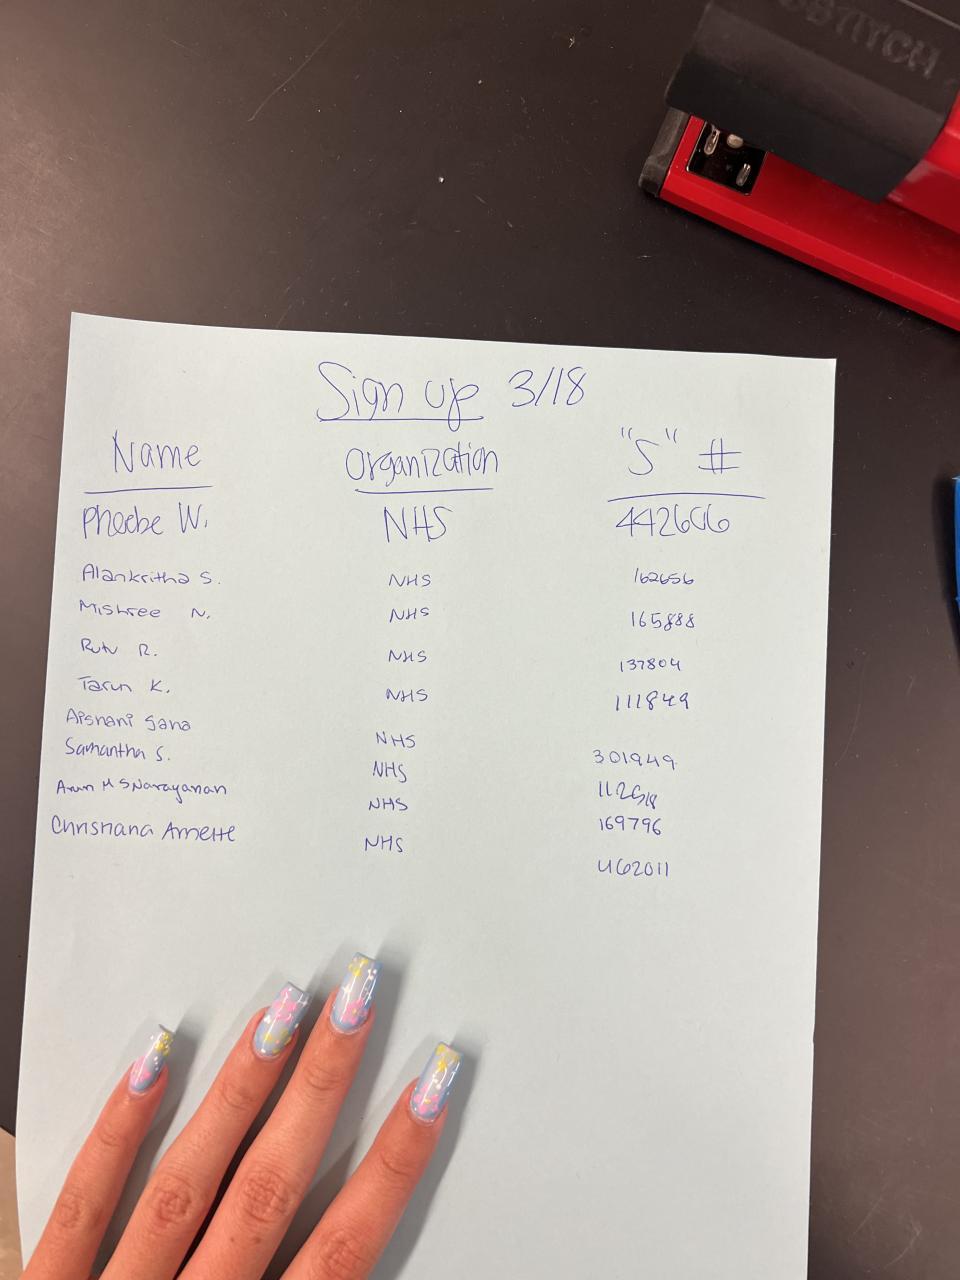 Sign up 3/18
Name Organization "S" #
Phoebe W. NHS 442606
Alankritha S. NHS 162656
Mishree N. NHS 165888
Rutu R. NHS 137804
Tarun K. NHS 111849
Aishani Sana NHS 301949
Samantha S. NHS
Arun M S Narayanan NHS 169796
Christiana Arnette NHS 462011